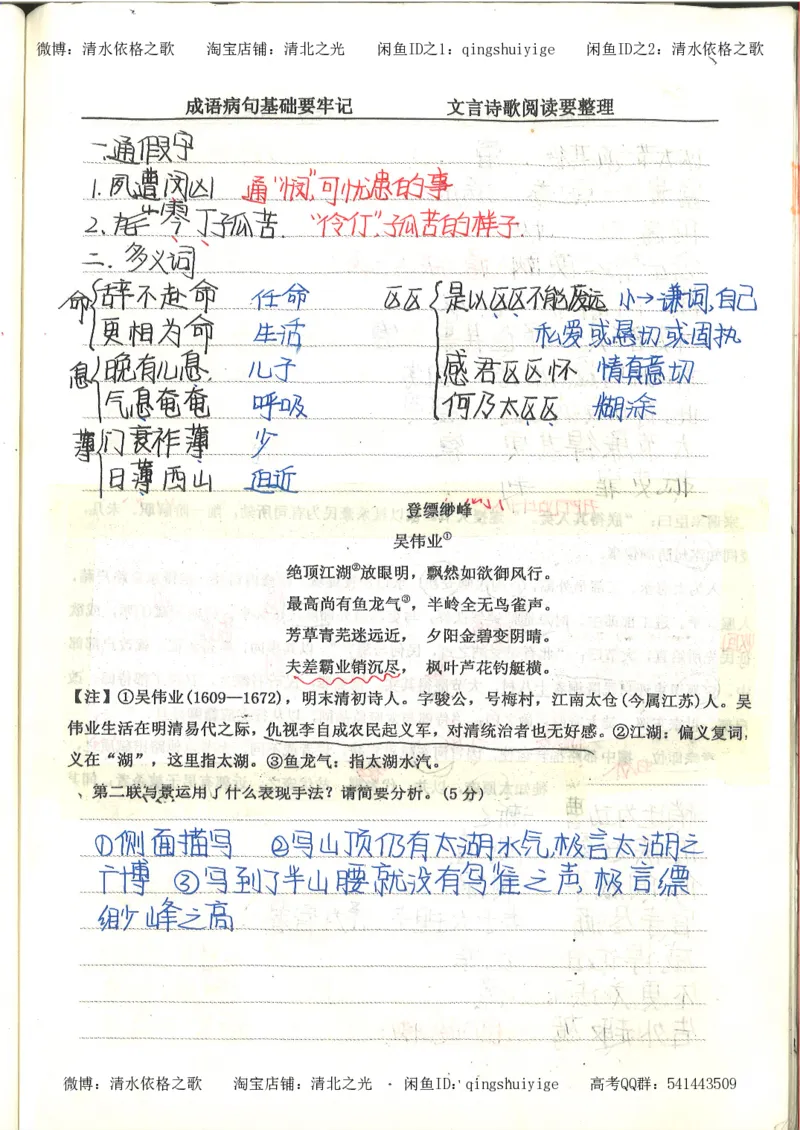 微博：清水依格之歌 淘宝店铺：清北之光 闲鱼ID之1：qingshuiyige 闲鱼ID之2：清水依格之歌
成语病句基础要牢记 文言诗歌阅读要整理
一.通假字
1.夙遭闵凶 通“悯”，可忧患的事
2.零丁孤苦. “伶仃”，孤苦的样子.
二.多义词
命 辞不赴命 任命 区区 是以区区不能废远 小→谦词，自己
更相为命 生活 私爱或恳切或固执
息 晚有儿息. 儿子 感君区区怀 情真意切
气息奄奄 呼吸 何乃太区区 糊涂
薄 门衰祚薄 少
日薄西山 迫近
登缥缈峰
吴伟业①
绝顶江湖②放眼明，飘然如欲御风行。
最高尚有鱼龙气③，半岭全无鸟雀声。
芳草青芜迷远近， 夕阳金碧变阴晴。
夫差霸业销沉尽， 枫叶芦花钓艇横。
【注】①吴伟业(1609—1672)，明末清初诗人。字骏公，号梅村，江南太仓(今属江苏)人。吴
伟业生活在明清易代之际，仇视李自成农民起义军，对清统治者也无好感。②江湖：偏义复词，
义在“湖”，这里指太湖。③鱼龙气：指太湖水汽。
第二联写景运用了什么表现手法？请简要分析。(5分)
①侧面描写 ②写山顶仍有太湖水气，极言太湖之
广博 ③写到了半山腰就没有鸟雀之声，极言缥
缈峰之高
微博：清水依格之歌 淘宝店铺：清北之光 闲鱼ID：qingshuiyige 高考QQ群：541443509